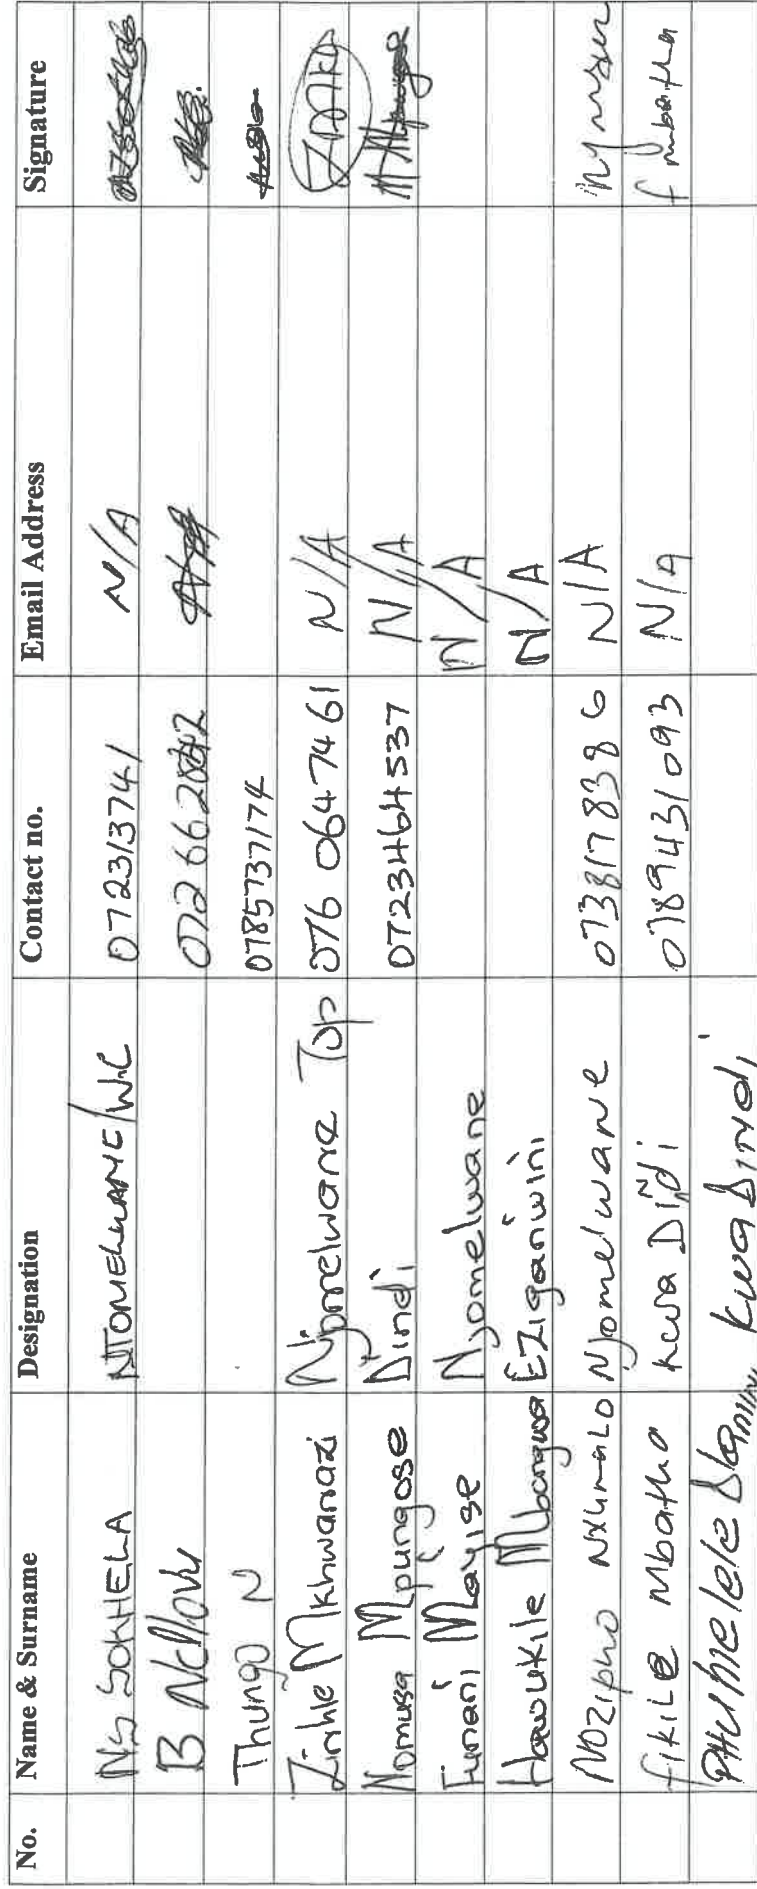 No. Name & Surname Designation Contact no. Email Address Signature
NS SOKHELA NJOMELWANE/W.C 072313741 N/A
B Ndlovu 072 662
Thungo N 0785737174
Zinhle Mkhwanazi Njomelwane Top 076 0647461 N/A
Nomusa Mpungose Dindi 0723464537 N/A M Mpungose
Funani Mayise Njomelwane N/A
Hawukile Mbangwa EZiganwini N/A
NOZIPHO NXUMALO Njomelwane 0738178386 N/A
fikile Mbatha kwa Dindi 0789431093 N/A f mbatha
PHUMelele Dlamini kwa Dindi